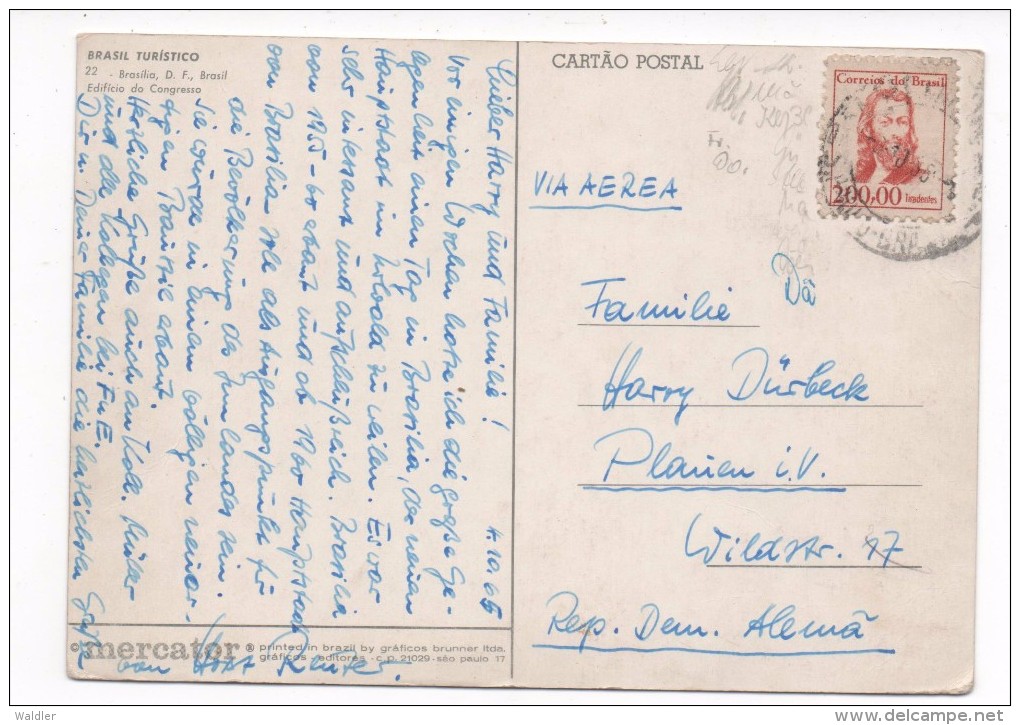 BRASIL TURÍSTICO
22 - Brasília, D. F., Brasil
Edifício do Congresso
CARTÃO POSTAL
Correios do Brasil
200,00 Tiradentes
VIA AEREA
4.10.65
Lieber Harry und Familie!
Vor einigen Wochen hatte ich die große Ge-
legenheit einen Tag in Brasilia, der neuen
Hauptstadt im zu weilen. Es war
sehr interessant und aufschlußreich. Brasilia
von 1955-60 erbaut und ab 1960 Hauptstadt
von Brasilia soll als Ausgangspunkt für
die Bevölkerung des Innlandes sein.
Sie wurde in einem völligen neuar-
tigen Baustil erbaut.
Herzliche Grüße auch an Koll. Müller
und die Kollegen bei
Dir u. Deiner Familie die herzlichsten Grüße
von Horst
Familie
Harry Dürbeck
Plauen i.V.
Wildstr. 17
Rep. Dem. Alemã
mercator ® printed in brazil by gráficos brunner ltda.
gráficos - editores - c. p. 21029 - são paulo 17
Waldler
www.delcampe.net